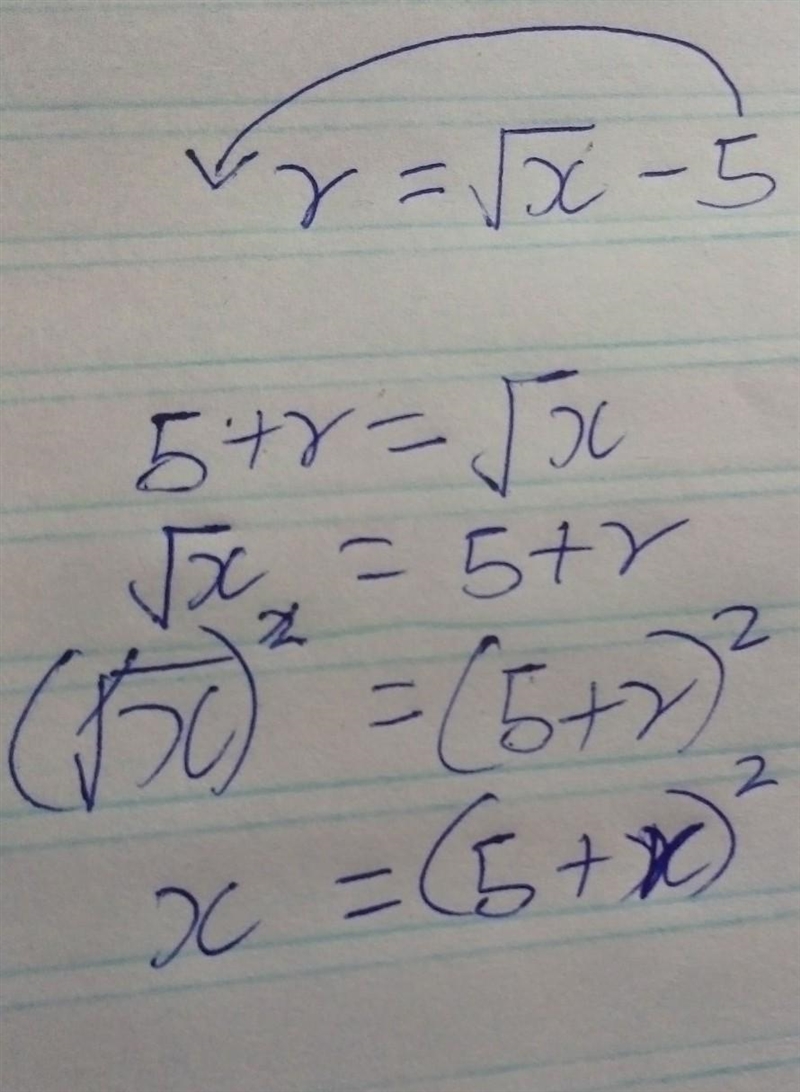 r = √x - 5
5 + r = √x
√x = 5 + r
(√x)² = (5 + r)²
x = (5 + x)²